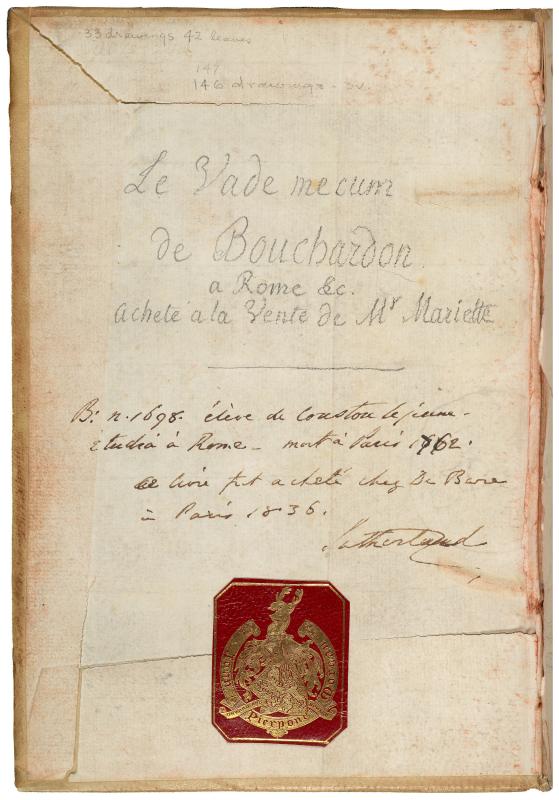 33 drawings 42 leaves
147
146 drawings
Le Vade mecum
de Bouchardon
a Rome &c.
acheté a la Vente de Mr Mariette
B: n. 1698. élève de Coustou le jeune.
étudia à Rome - mort à Paris 1762.
ce livre fut acheté chez De Bure
à Paris 1836.
Sutherland
Pierpont